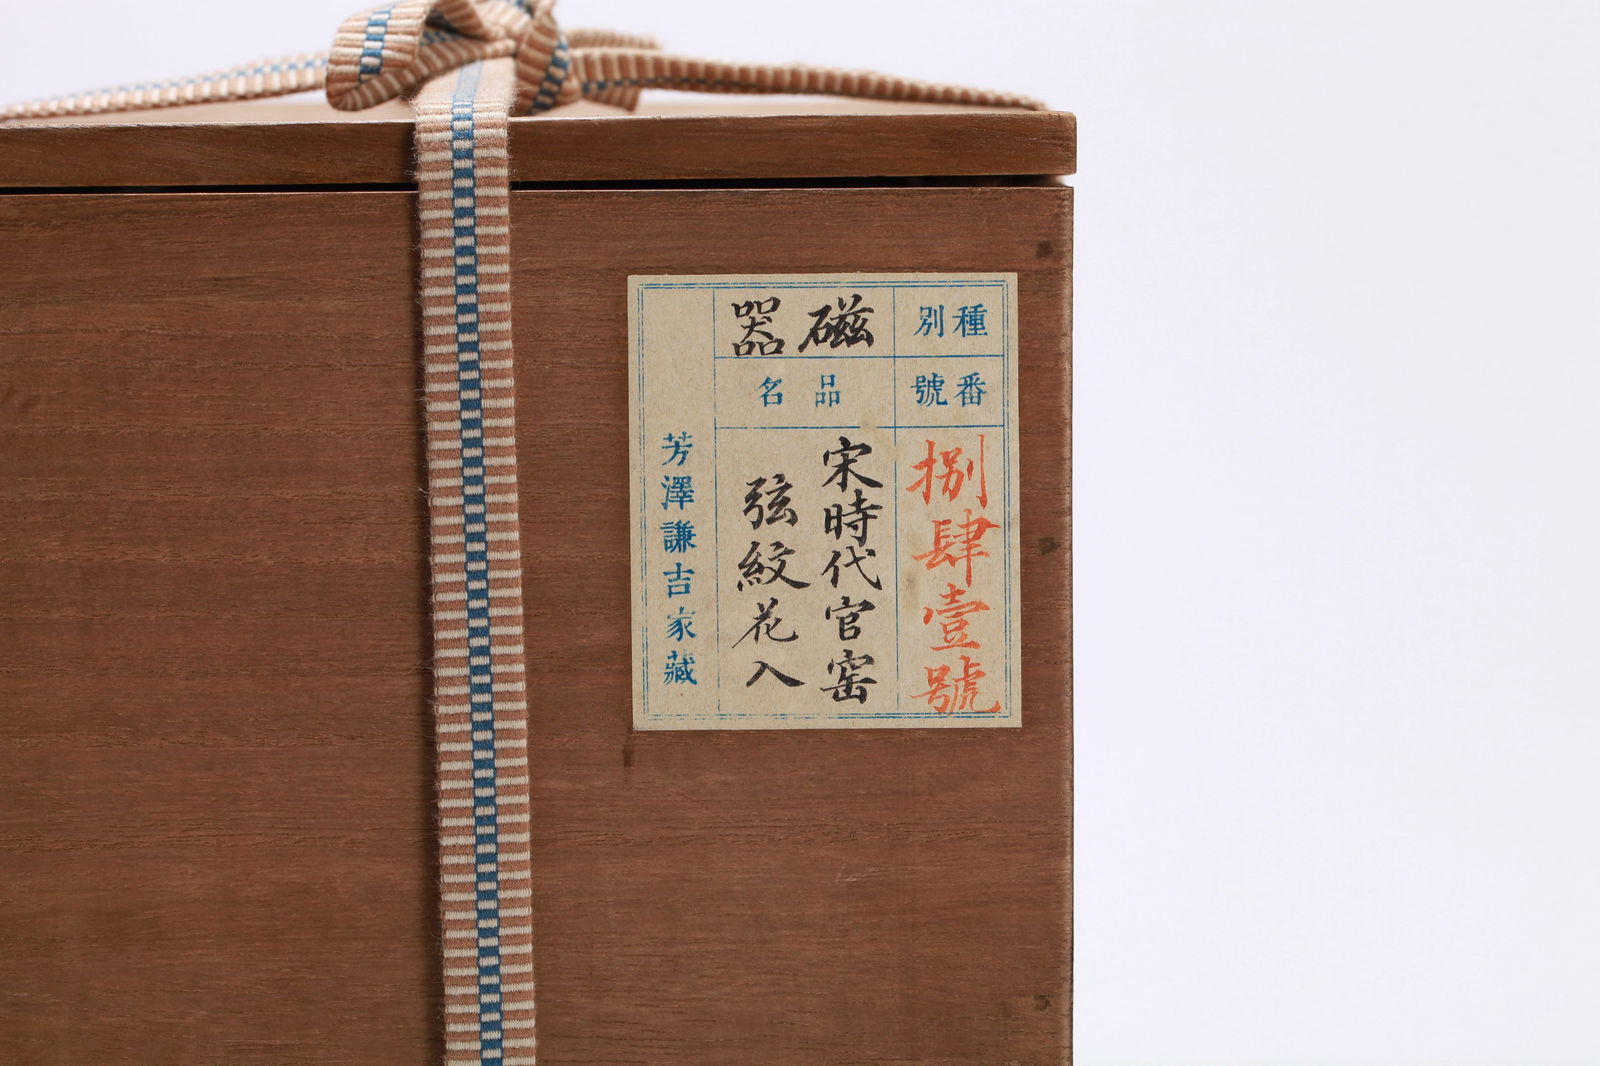 種別
磁器
番號
品名
捌肆壹號
宋時代官窑
弦紋花入
芳澤謙吉家藏